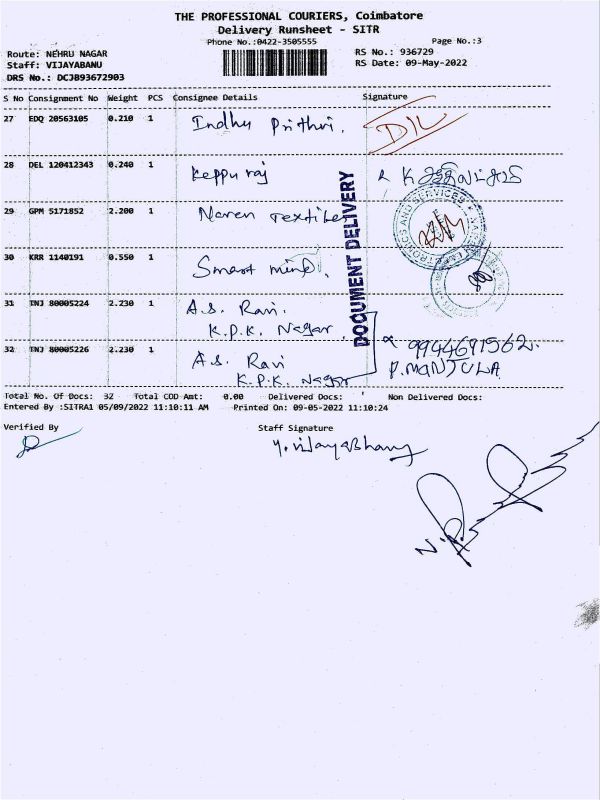 THE PROFESSIONAL COURIERS, Coimbatore
Delivery Runsheet - SITR
Phone No.:0422-3505555 Page No.:3
Route: NEHRU NAGAR RS No.: 936729
Staff: VIJAYABANU RS Date: 09-May-2022
DRS No.: DCJB93672903
S No Consignment No Weight PCS Consignee Details Signature
27 EDQ 20563105 0.210 1 Indhu Prithvi.
28 DEL 120412343 0.240 1 Keppu raj
29 GPM 5171852 2.200 1 Naren Textiles
30 KRR 1140191 0.550 1 Smart mind.
31 TNJ 80005224 2.230 1 A.S. Ravi.
K.P.K. Nagar.
32 TNJ 80005226 2.230 1 A.S. Ravi
K.P.K. Nagar
9944691562.
P.MANJULA
DOCUMENT DELIVERY
Total No. Of Docs: 32 Total COD Amt: 0.00 Delivered Docs: Non Delivered Docs:
Entered By :SITRA1 05/09/2022 11:10:11 AM Printed On: 09-05-2022 11:10:24
Verified By Staff Signature
Y. Vijayabhanu